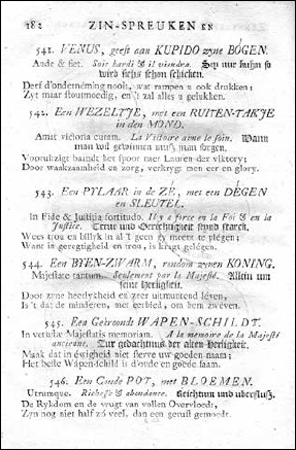 182 ZIN-SPREUKEN
541. VENUS, geeft aan KUPIDO zyne BOGEN.
Aude & fiet. Soir hardi & il viendra. Sey nur kuhn so
wird sichs schon schicken.
Derf d'onderneming nooit, wat rampen u ook drukken;
Zyt maar stoutmoedig, en't zal alles u gelukken.
542. Een WEZELTJE, met een RUITEN-TAKJE
in den MOND.
Amat victoria curam. La Victoire aime le soin. Wann
man will gewinnen muß man sorgen.
Voorzigtigt baandt het spoor naer Lauren der viktory;
Door waakzaamheid en zorg, verkrygt men eer en glory.
543. Een PYLAAR in de ZÉ, met een DEGEN
en SLEUTEL.
In Fide & Justitia fortitudo. Il y a force en la Foi & en la
Justice. Treue und Gerechtigkeit seynd starck.
Wees trou en billyk in al 't geen gy meent te plegen;
Want in geregtigheid en trou, is kragt gelégen.
544. Een BYEN-ZWARM, rondom zynen KONING.
Majestate tantum. Seulement par la Majesté. Allein um
seine Herligkeit.
Door zyne heerlykheid en zeer uitmuntend léven,
Is 't dat de minderen, met eerbied, om hem zweven.
545. Een Gekroond WAPEN-SCHILDT.
In vetustæ Majestatis memoriam. A la memoire de la Majesté
ancienne. Zur gedächtnus der alten Herligkeit.
Maak dat in éwigheid niet sterve uw goeden naam;
Het beste Wapenschild is d'oude en goede faam.
546. Een Goude POT, met BLOEMEN.
Utrumque. Richesse & abondance. Reichtum und überfluß.
De Rykdom en de vrugt van vollen Overvloedt,
Zyn nog niet half zó veel, dan een gerust gemoedt.